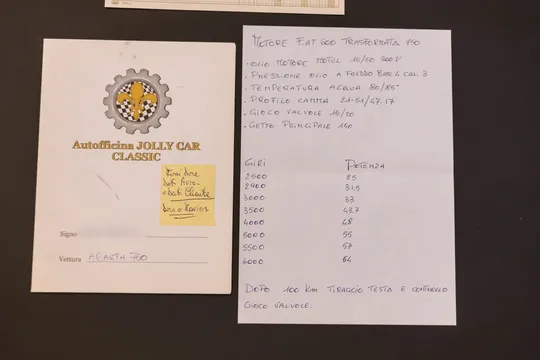 Autofficina JOLLY CAR
CLASSIC
Dati Auto
e dati Cliente
Signo
Vettura ABARTH 750
MOTORE FIAT 600 TRASFORMATA 750
- OLIO MOTORE MOTUL 15/50 300V
- PRESSIONE OLIO A FREDDO BAR 4 CAL. 3
- TEMPERATURA ACQUA 80/85°
- PROFILO CAMMA 21-51/47.17
- GIOCO VALVOLE 15/20
- GETTO PRINCIPALE 150
GIRI POTENZA
2500 25
2900 31.5
3000 33
3500 43.7
4000 48
5000 55
5500 57
6000 54
DOPO 100 KM TIRAGGIO TESTA E CONTROLLO
GIOCO VALVOLE.